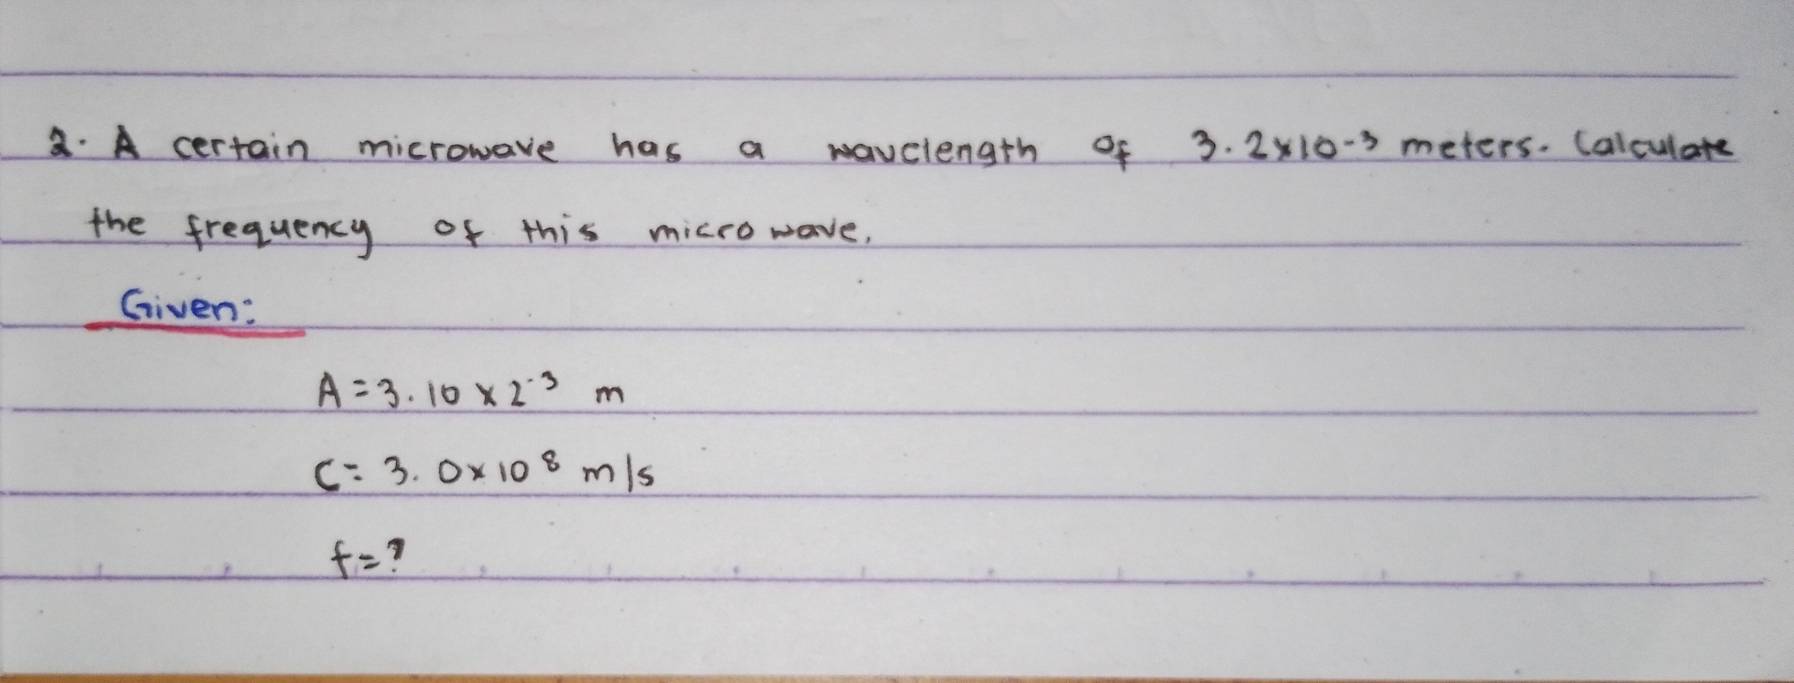 2. A certain microwave has a wavelength of 3.2x10-3 meters. Calculate
the frequency of this microwave.
Given:
A = 3.10 x 2-3 m
C = 3.0x10 8 m/s
f = ?